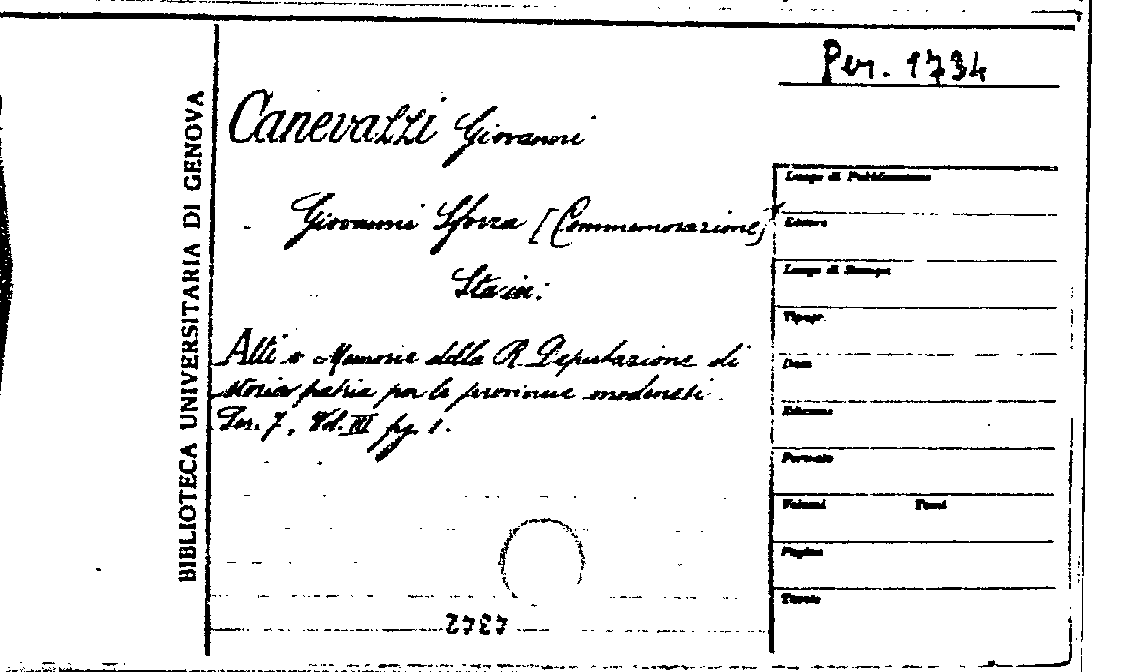 Per. 1734
BIBLIOTECA UNIVERSITARIA DI GENOVA
Canevazzi Giovanni
Giovanni Sforza [Commemorazione]
Sta in:
Atti e Memorie della R. Deputazione di
storia patria per le provincie modenesi.
Ser. 7, Vol. III pg. 1.
Luogo di Pubblicazione
Editore
Luogo di Stampa
Tipogr.
Data
Edizione
Formato
Volumi Tomi
Pagine
Tavole